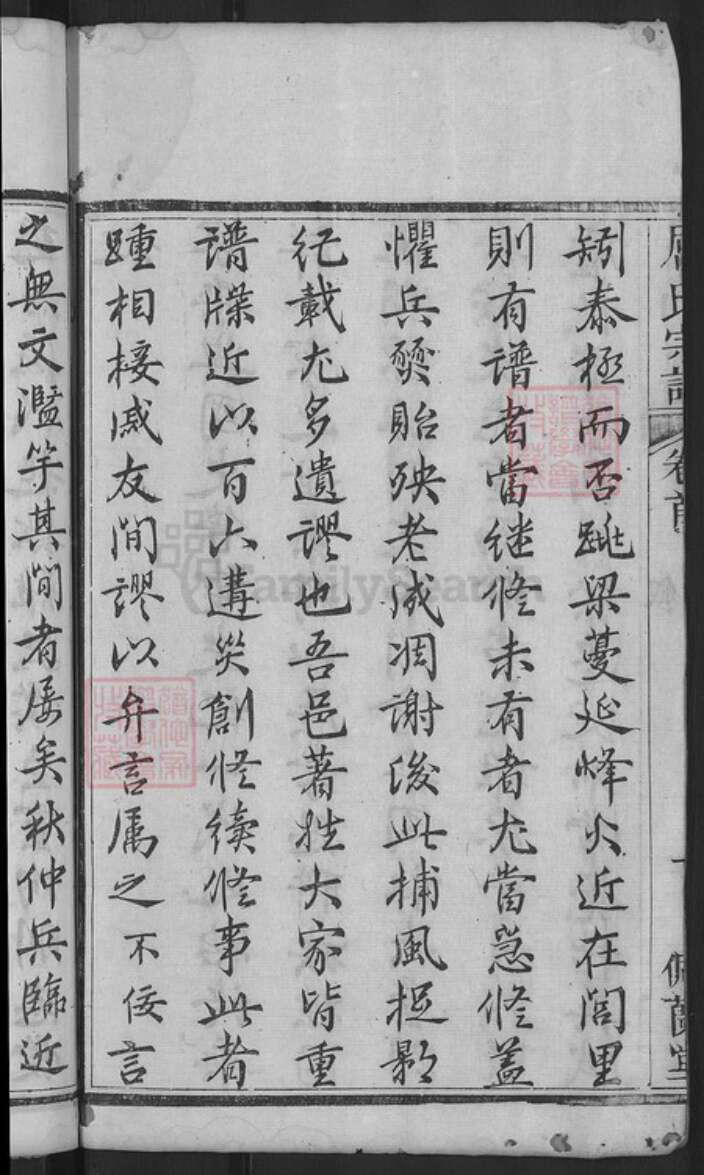 氏宗譜 卷首
矧泰極而否跳梁蔓延烽火近在閭里
則有譜者當継修未有者尤當急修蓋
懼兵燹貽殃老成凋謝後此捕風捉影
紀載尤多遺謬也吾邑著姓大家皆重
譜牒近以百六遘災創修續修事此者
踵相接戚友間謬以弁言屬之不佞言
之無文濫竽其間者屡矣秋仲兵臨近
FamilySearch